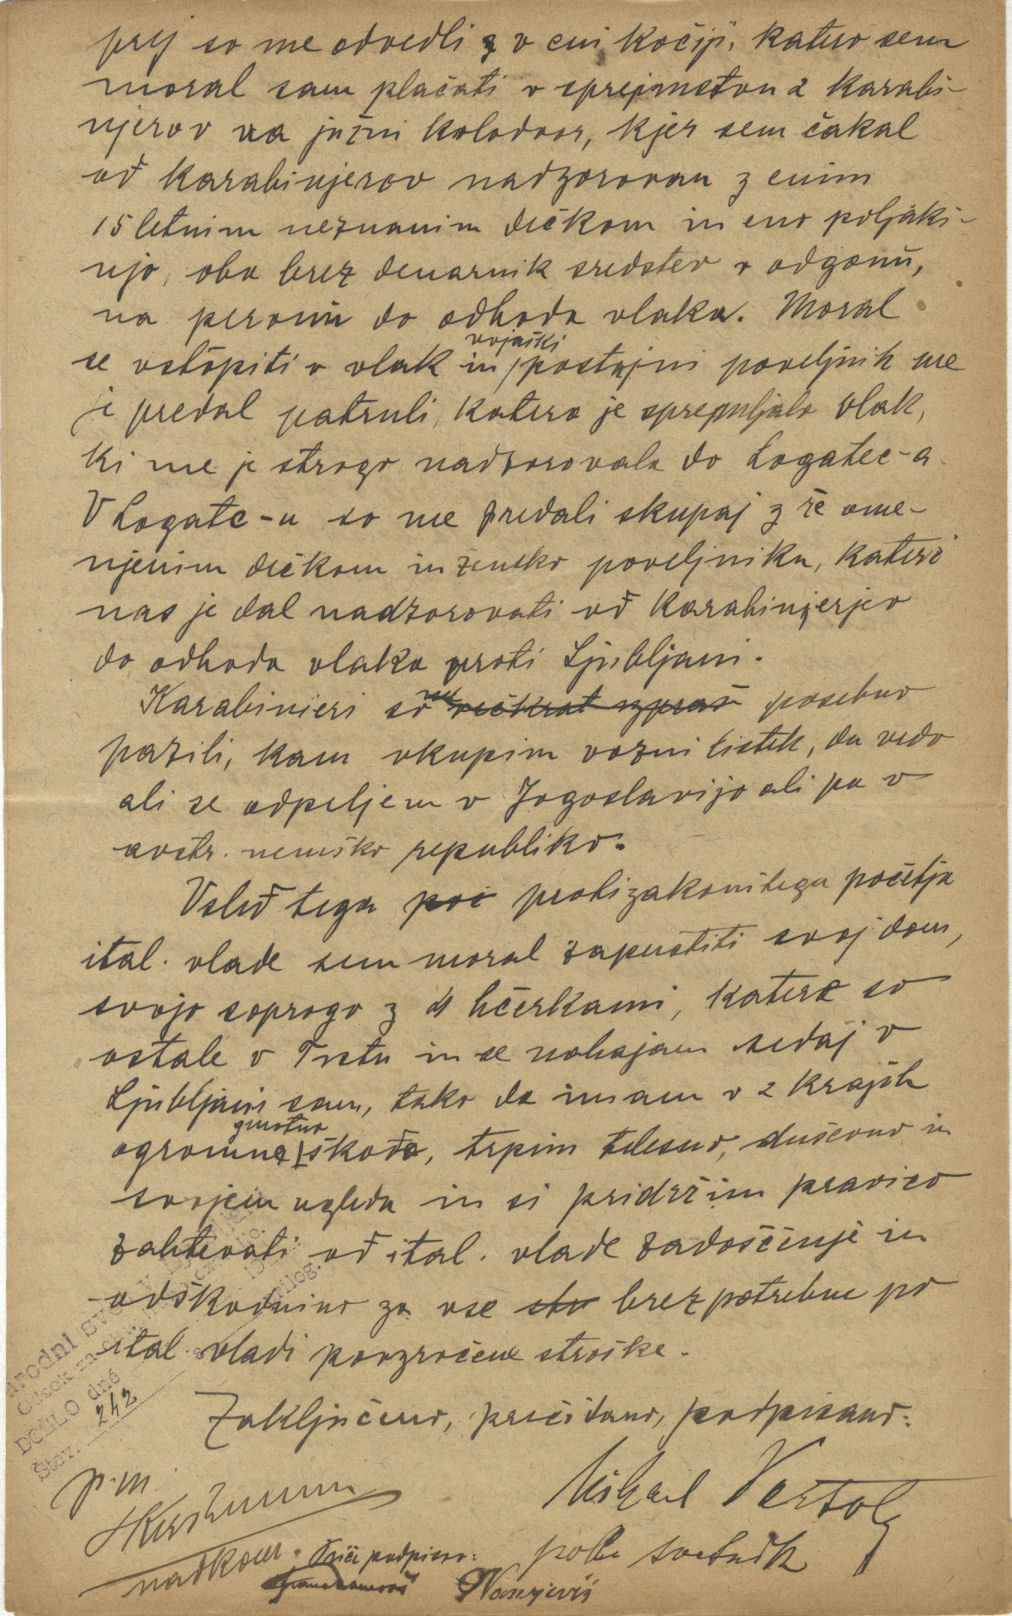 prej so me odvedli v eni kočiji, katero sem
moral sam plačati v spremstvu 2 karabi-
njerov na južni kolodvor, kjer sem čakal
od karabinjerov nadzorovan z enim
15 letnim neznanim dečkom in eno poljaki-
njo, oba brez denarnik sredstev v odgonu,
na peronu do odhoda vlaka. Moral
se vstopiti v vlak in vojaški postajni poveljnik me
je predal patruli, katera je spremljala vlak,
ki me je strogo nadzorovala do Logatec-a.
V Logatc-u so me predali skupaj z že ome-
njenim dečkom in žensko poveljniku, kateri
nas je dal nadzorovati od karabinjerjev
do odhoda vlaka proti Ljubljani.
Karabinieri so me večkrat izpraš posebno
pazili, kam vkupim vozni listek, da vedo
ali se odpeljem v Jogoslavijo ali pa v
avstr. nemško republiko.
Vsled tega poč protizakonitega početja
ital. vlade sem moral zapustiti svoj dom,
svojo soprogo z 4 hčerkami, katere so
ostale v Trstu in se nahajam sedaj v
Ljubljani sam, tako da imam v 2 krajih
ogromno gmotno škodo, trpim telesno, duševno in
svojem ugledu in si pridržim pravico
zahtevati od ital. vlade zadoščenje in
odškodnino za vse brezpotrebne po
ital. vladi povzročene stroške.
Zaključeno, prečitano, podpisano:
p.m.
Mihael Vertol
nadkom.
Priči podpisov:
svetnik
arodni svet v
DOŠLO dne
Štev. 242
prilog.